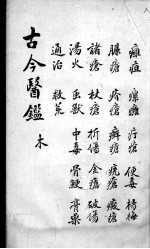 癰疽 瘰癧 疔瘡 便毒 楊梅
臁瘡 疥瘡 癬瘡 瘡 瘡
諸瘡 杖瘡 折傷 金瘡 破傷
湯火 虫獸 中毒 骨鯁 膏藥
通治 救荒
古今醫鑑 木